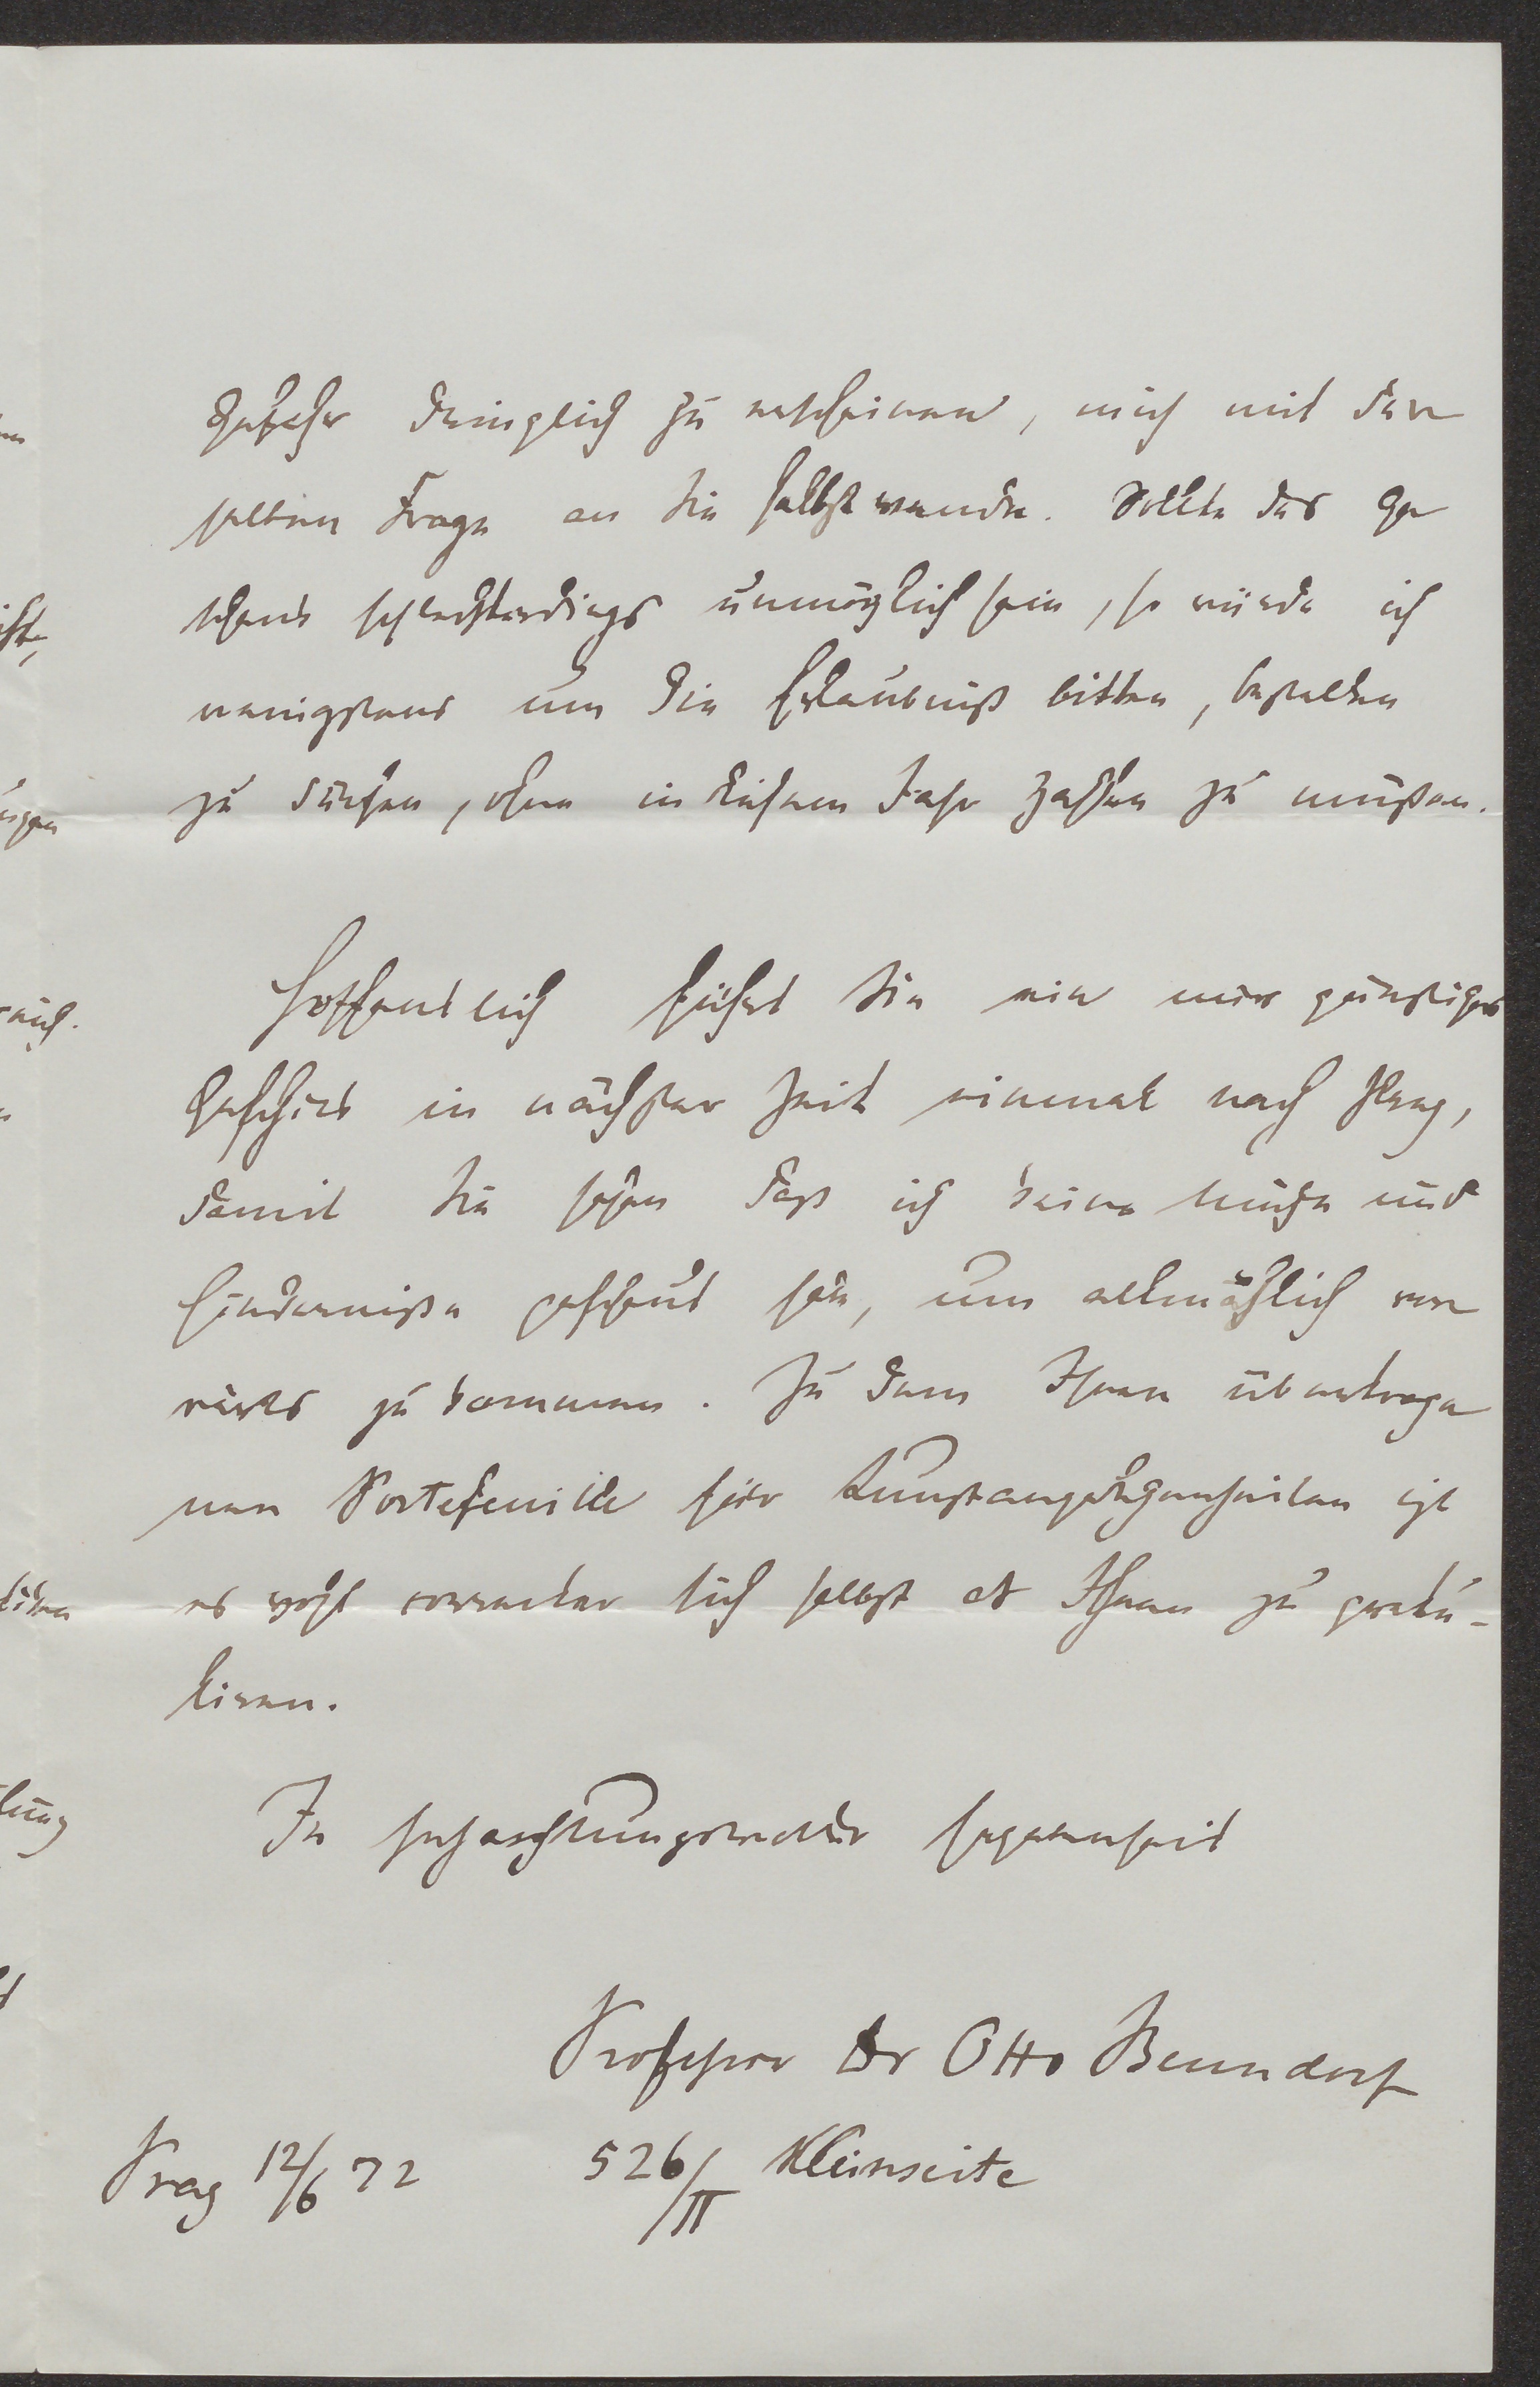 Gefahr dringlich zu erscheinen, mich mit der
selben Frage an Sie selbst wende. Sollte das Ge
schenk schlechterdings unmöglich sein, so würde ich
wenigstens um die Erlaubniß bitten, bestellen
zu dürfen, ohne in diesem Jahr zahlen zu müßen.
Hoffentlich führt Sie ein mir günstiges
Geschick in nächster Zeit einmal nach Prag,
damit Sie sehen daß ich keine Mühe und
Hinderniße gescheut habe, um allmählich vor
wärts zu kommen. Zu dem Ihnen übertrage
nen Portefeuille für Kunstangelegenheiten ist
es wohl correcter sich selbst als Ihnen zu gratu-
liren.
In hochachtungsvoller Ergebenheit
Professor Dr Otto Benndorf
Prag 12/6 72
526/II Kleinseite